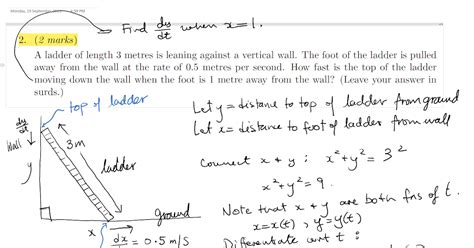 Monday, 19 September
Find dy/dt when x=1.
2. (2 marks)
A ladder of length 3 metres is leaning against a vertical wall. The foot of the ladder is pulled
away from the wall at the rate of 0.5 metres per second. How fast is the top of the ladder
moving down the wall when the foot is 1 metre away from the wall? (Leave your answer in
surds.)
top of ladder
dy/dt
wall
y
3m
ladder
ground
x
dx/dt = 0.5 m/s
Let y = distane to top of ladder from ground
Let x = distane to foot of ladder from wall
Connect x & y : x²+y² = 3²
x²+y² = 9.
Note that x & y are both fns of t.
x=x(t), y=y(t)
Differentiate wrt t :